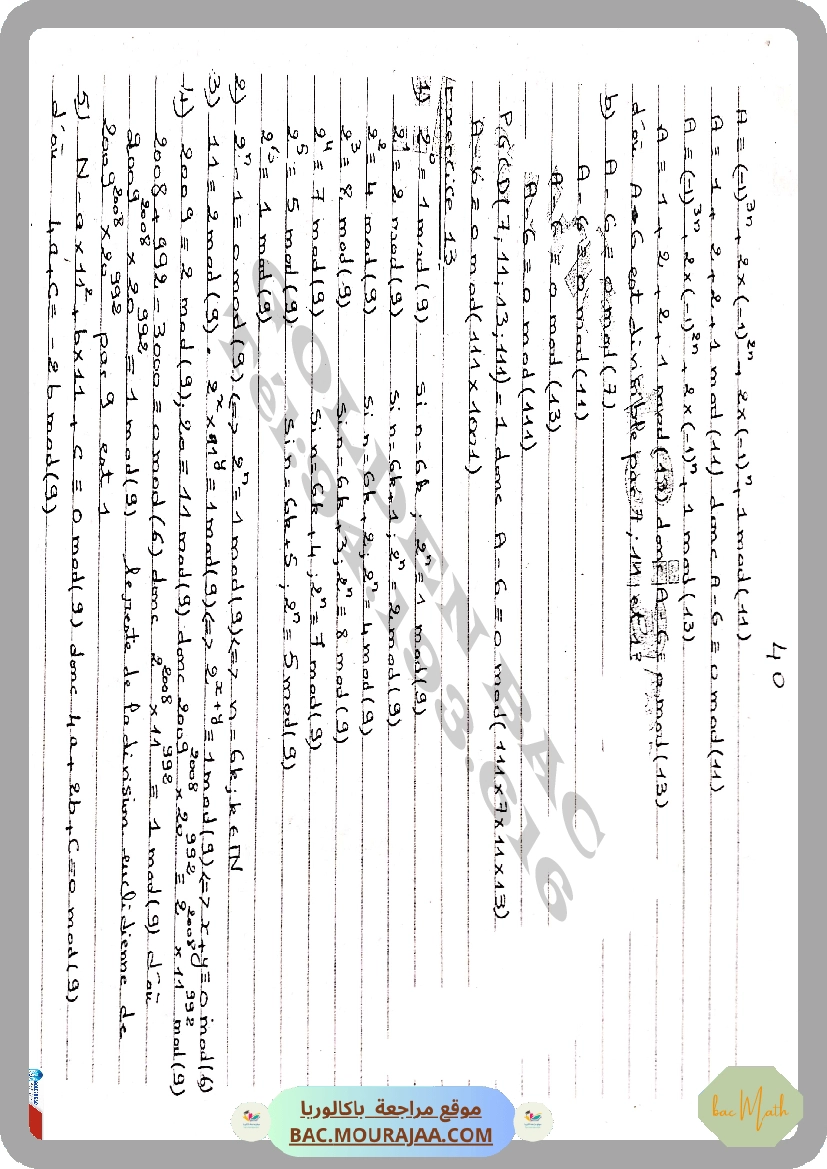 40
A ≡ (-1)³ⁿ + 2×(-1)²ⁿ + 2×(-1)ⁿ + 1 mod(11)
A ≡ 1 + 2 + 2 + 1 mod(11) donc A - 6 ≡ 0 mod(11)
A ≡ (-1)³ⁿ + 2×(-1)²ⁿ + 2×(-1)ⁿ + 1 mod(13)
A ≡ 1 + 2 + 2 + 1 mod(13) donc A - 6 ≡ 0 mod(13)
d'où A - 6 est divisible par 7, 11 et 13
b) A - 6 ≡ 0 mod(7)
A - 6 ≡ 0 mod(11)
A - 6 ≡ 0 mod(13)
A - 6 ≡ 0 mod(111)
PGCD(7, 11, 13, 111) = 1 donc A - 6 ≡ 0 mod(111×7×11×13)
A - 6 ≡ 0 mod(111×1001)
Exercice 13
1) 2⁰ ≡ 1 mod(9) si n = 6k ; 2ⁿ ≡ 1 mod(9)
2¹ ≡ 2 mod(9) si n = 6k+1 ; 2ⁿ ≡ 2 mod(9)
2² ≡ 4 mod(9) si n = 6k+2 ; 2ⁿ ≡ 4 mod(9)
2³ ≡ 8 mod(9) si n = 6k+3 ; 2ⁿ ≡ 8 mod(9)
2⁴ ≡ 7 mod(9) si n = 6k+4 ; 2ⁿ ≡ 7 mod(9)
2⁵ ≡ 5 mod(9) si n = 6k+5 ; 2ⁿ ≡ 5 mod(9)
2⁶ ≡ 1 mod(9)
2) 2ⁿ - 1 ≡ 0 mod(9) <=> 2ⁿ ≡ 1 mod(9) <=> n = 6k ; k ∈ IN
3) 11 ≡ 2 mod(9) . 2ˣ × 11ʸ ≡ 1 mod(9) <=> 2ˣ⁺ʸ ≡ 1 mod(9) <=> x+y ≡ 0 mod(6)
4) 2009 ≡ 2 mod(9) ; 20 ≡ 11 mod(9) donc 2009²⁰⁰⁸ × 20⁹⁹² ≡ 2²⁰⁰⁸ × 11⁹⁹² mod(9)
2008 + 992 = 3000 ≡ 0 mod(6) donc 2²⁰⁰⁸ × 11⁹⁹² ≡ 1 mod(9) d'où
2009²⁰⁰⁸ × 20⁹⁹² ≡ 1 mod(9) le reste de la division euclidienne de
2009²⁰⁰⁸ × 20⁹⁹² par 9 est 1
5) N = a×11² + b×11 + c ≡ 0 mod(9) donc 4a + 2b + c ≡ 0 mod(9)
d'où 4a + c ≡ -2b mod(9)
GOLDEN BAC
Tel:94.193.616
موقع مراجعة باكالوريا
BAC.MOURAJAA.COM
bac Math